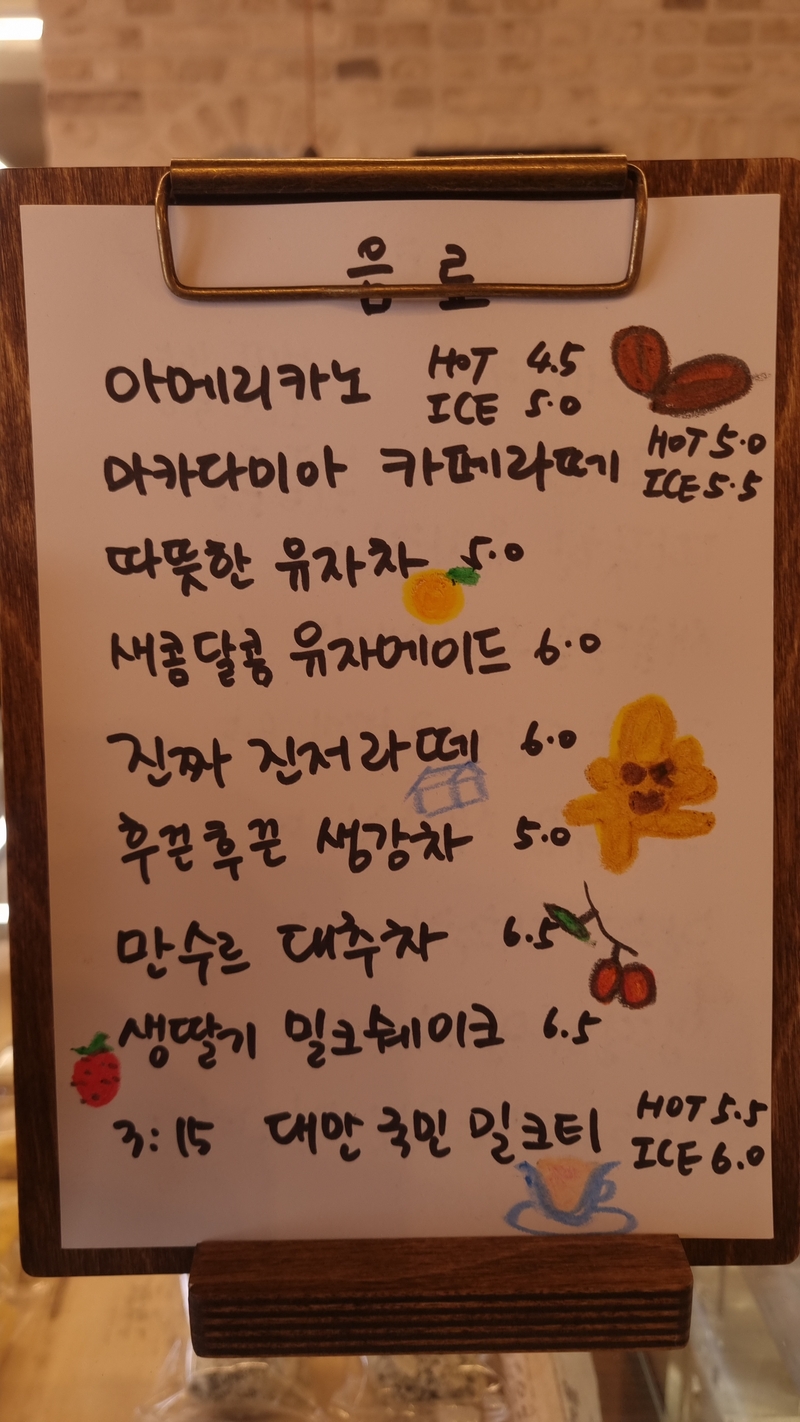 음료
아메리카노 HOT 4.5
ICE 5.0
마카다미아 카페라떼 HOT 5.0
ICE 5.5
따뜻한 유자차 5.0
새콤달콤 유자에이드 6.0
진짜 진저라떼 6.0
후끈후끈 생강차 5.0
만수르 대추차 6.5
생딸기 밀크쉐이크 6.5
3:15 대만 국민 밀크티 HOT 5.5
ICE 6.0